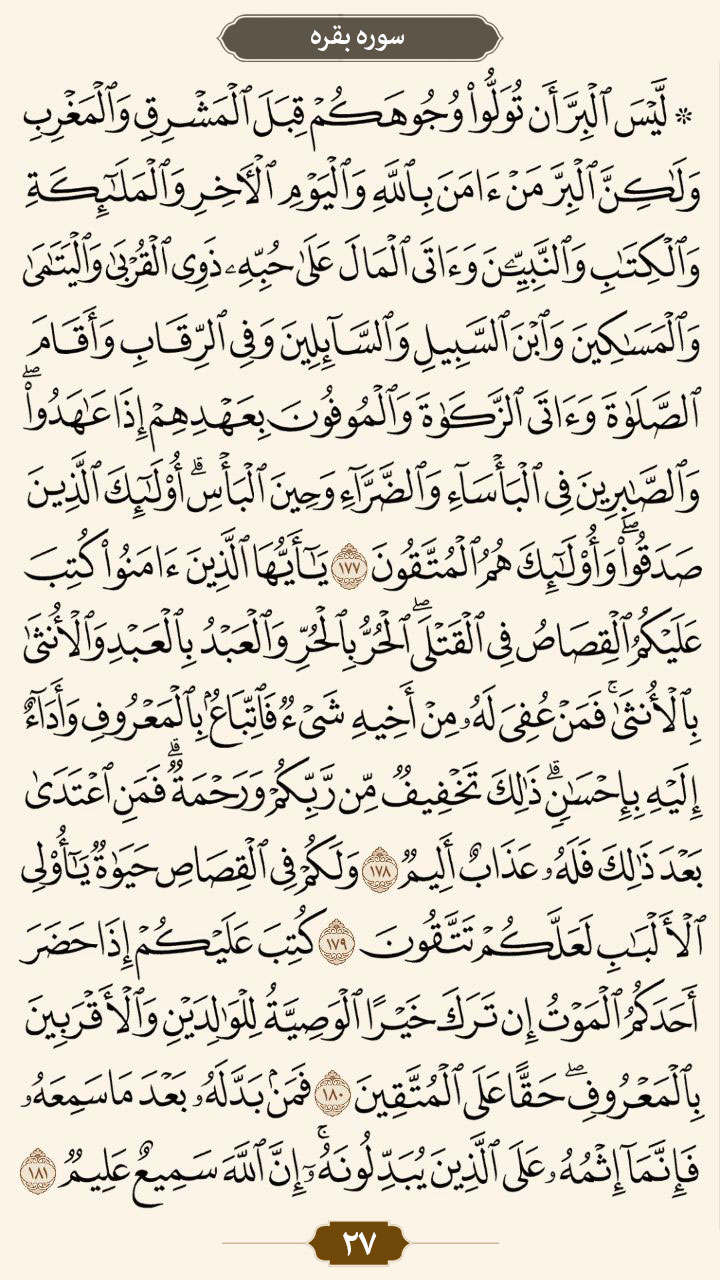 سوره بقره
۞ لَّيۡسَ ٱلۡبِرَّ أَن تُوَلُّواْ وُجُوهَكُمۡ قِبَلَ ٱلۡمَشۡرِقِ وَٱلۡمَغۡرِبِ
وَلَٰكِنَّ ٱلۡبِرَّ مَنۡ ءَامَنَ بِٱللَّهِ وَٱلۡيَوۡمِ ٱلۡأٓخِرِ وَٱلۡمَلَٰٓئِكَةِ
وَٱلۡكِتَٰبِ وَٱلنَّبِيِّـۧنَ وَءَاتَى ٱلۡمَالَ عَلَىٰ حُبِّهِۦ ذَوِي ٱلۡقُرۡبَىٰ وَٱلۡيَتَٰمَىٰ
وَٱلۡمَسَٰكِينَ وَٱبۡنَ ٱلسَّبِيلِ وَٱلسَّآئِلِينَ وَفِي ٱلرِّقَابِ وَأَقَامَ
ٱلصَّلَوٰةَ وَءَاتَى ٱلزَّكَوٰةَ وَٱلۡمُوفُونَ بِعَهۡدِهِمۡ إِذَا عَٰهَدُواْۖ
وَٱلصَّٰبِرِينَ فِي ٱلۡبَأۡسَآءِ وَٱلضَّرَّآءِ وَحِينَ ٱلۡبَأۡسِۗ أُوْلَٰٓئِكَ ٱلَّذِينَ
صَدَقُواْۖ وَأُوْلَٰٓئِكَ هُمُ ٱلۡمُتَّقُونَ ١٧٧ يَٰٓأَيُّهَا ٱلَّذِينَ ءَامَنُواْ كُتِبَ
عَلَيۡكُمُ ٱلۡقِصَاصُ فِي ٱلۡقَتۡلَىۖ ٱلۡحُرُّ بِٱلۡحُرِّ وَٱلۡعَبۡدُ بِٱلۡعَبۡدِ وَٱلۡأُنثَىٰ
بِٱلۡأُنثَىٰۚ فَمَنۡ عُفِيَ لَهُۥ مِنۡ أَخِيهِ شَيۡءٞ فَٱتِّبَاعُۢ بِٱلۡمَعۡرُوفِ وَأَدَآءٌ
إِلَيۡهِ بِإِحۡسَٰنٖۗ ذَٰلِكَ تَخۡفِيفٞ مِّن رَّبِّكُمۡ وَرَحۡمَةٞۗ فَمَنِ ٱعۡتَدَىٰ
بَعۡدَ ذَٰلِكَ فَلَهُۥ عَذَابٌ أَلِيمٞ ١٧٨ وَلَكُمۡ فِي ٱلۡقِصَاصِ حَيَوٰةٞ يَٰٓأُوْلِي
ٱلۡأَلۡبَٰبِ لَعَلَّكُمۡ تَتَّقُونَ ١٧٩ كُتِبَ عَلَيۡكُمۡ إِذَا حَضَرَ
أَحَدَكُمُ ٱلۡمَوۡتُ إِن تَرَكَ خَيۡرًا ٱلۡوَصِيَّةُ لِلۡوَٰلِدَيۡنِ وَٱلۡأَقۡرَبِينَ
بِٱلۡمَعۡرُوفِۖ حَقًّا عَلَى ٱلۡمُتَّقِينَ ١٨٠ فَمَنۢ بَدَّلَهُۥ بَعۡدَ مَا سَمِعَهُۥ
فَإِنَّمَآ إِثۡمُهُۥ عَلَى ٱلَّذِينَ يُبَدِّلُونَهُۥٓۚ إِنَّ ٱللَّهَ سَمِيعٌ عَلِيمٞ ١٨١
٢٧